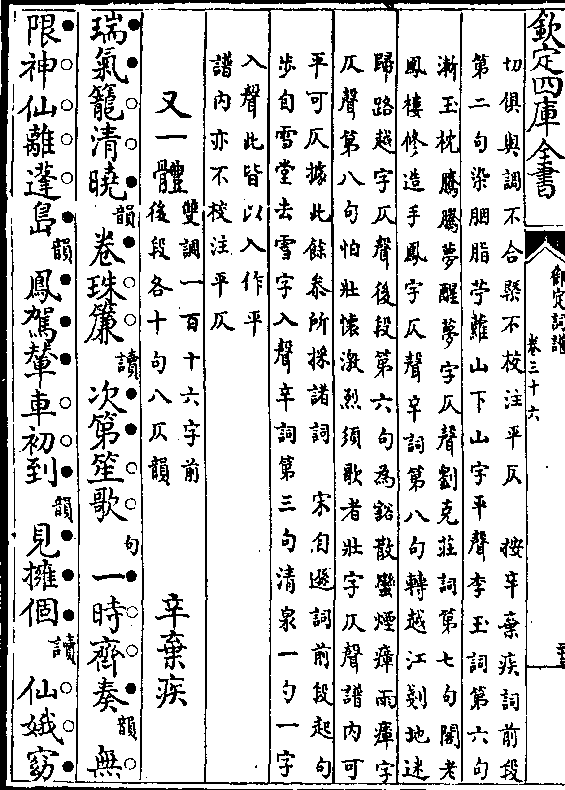 欽定四庫全書
御定詞譜
卷三十六
切俱與調不合槩不校注平仄　按辛棄疾詞前段
第二句染胭脂苧蘿山下山字平聲李玉詞第六句
漸玉枕騰騰夢醒夢字仄聲劉克莊詞第七句閣老
鳳樓修造手鳳字仄聲辛詞第八句轉越江剗地迷
歸路越字仄聲後段第六句為谿散蠻煙瘴雨瘴字
仄聲第八句怕壯懷激烈須歌者壯字仄聲譜內可
平可仄據此餘叅所採諸詞　宋自遜詞前段起句
步自雪堂去雪字入聲辛詞第三句清泉一勺一字
入聲此皆以入作平
譜內亦不校注平仄
又一體　雙調一百十六字前
後段各十句八仄韻　辛棄疾
瑞氣籠清曉韻卷珠簾讀次第笙歌句一時齊奏韻無
限神仙離蓬島韻鳳駕輦車初到韻見擁個讀仙娥窈